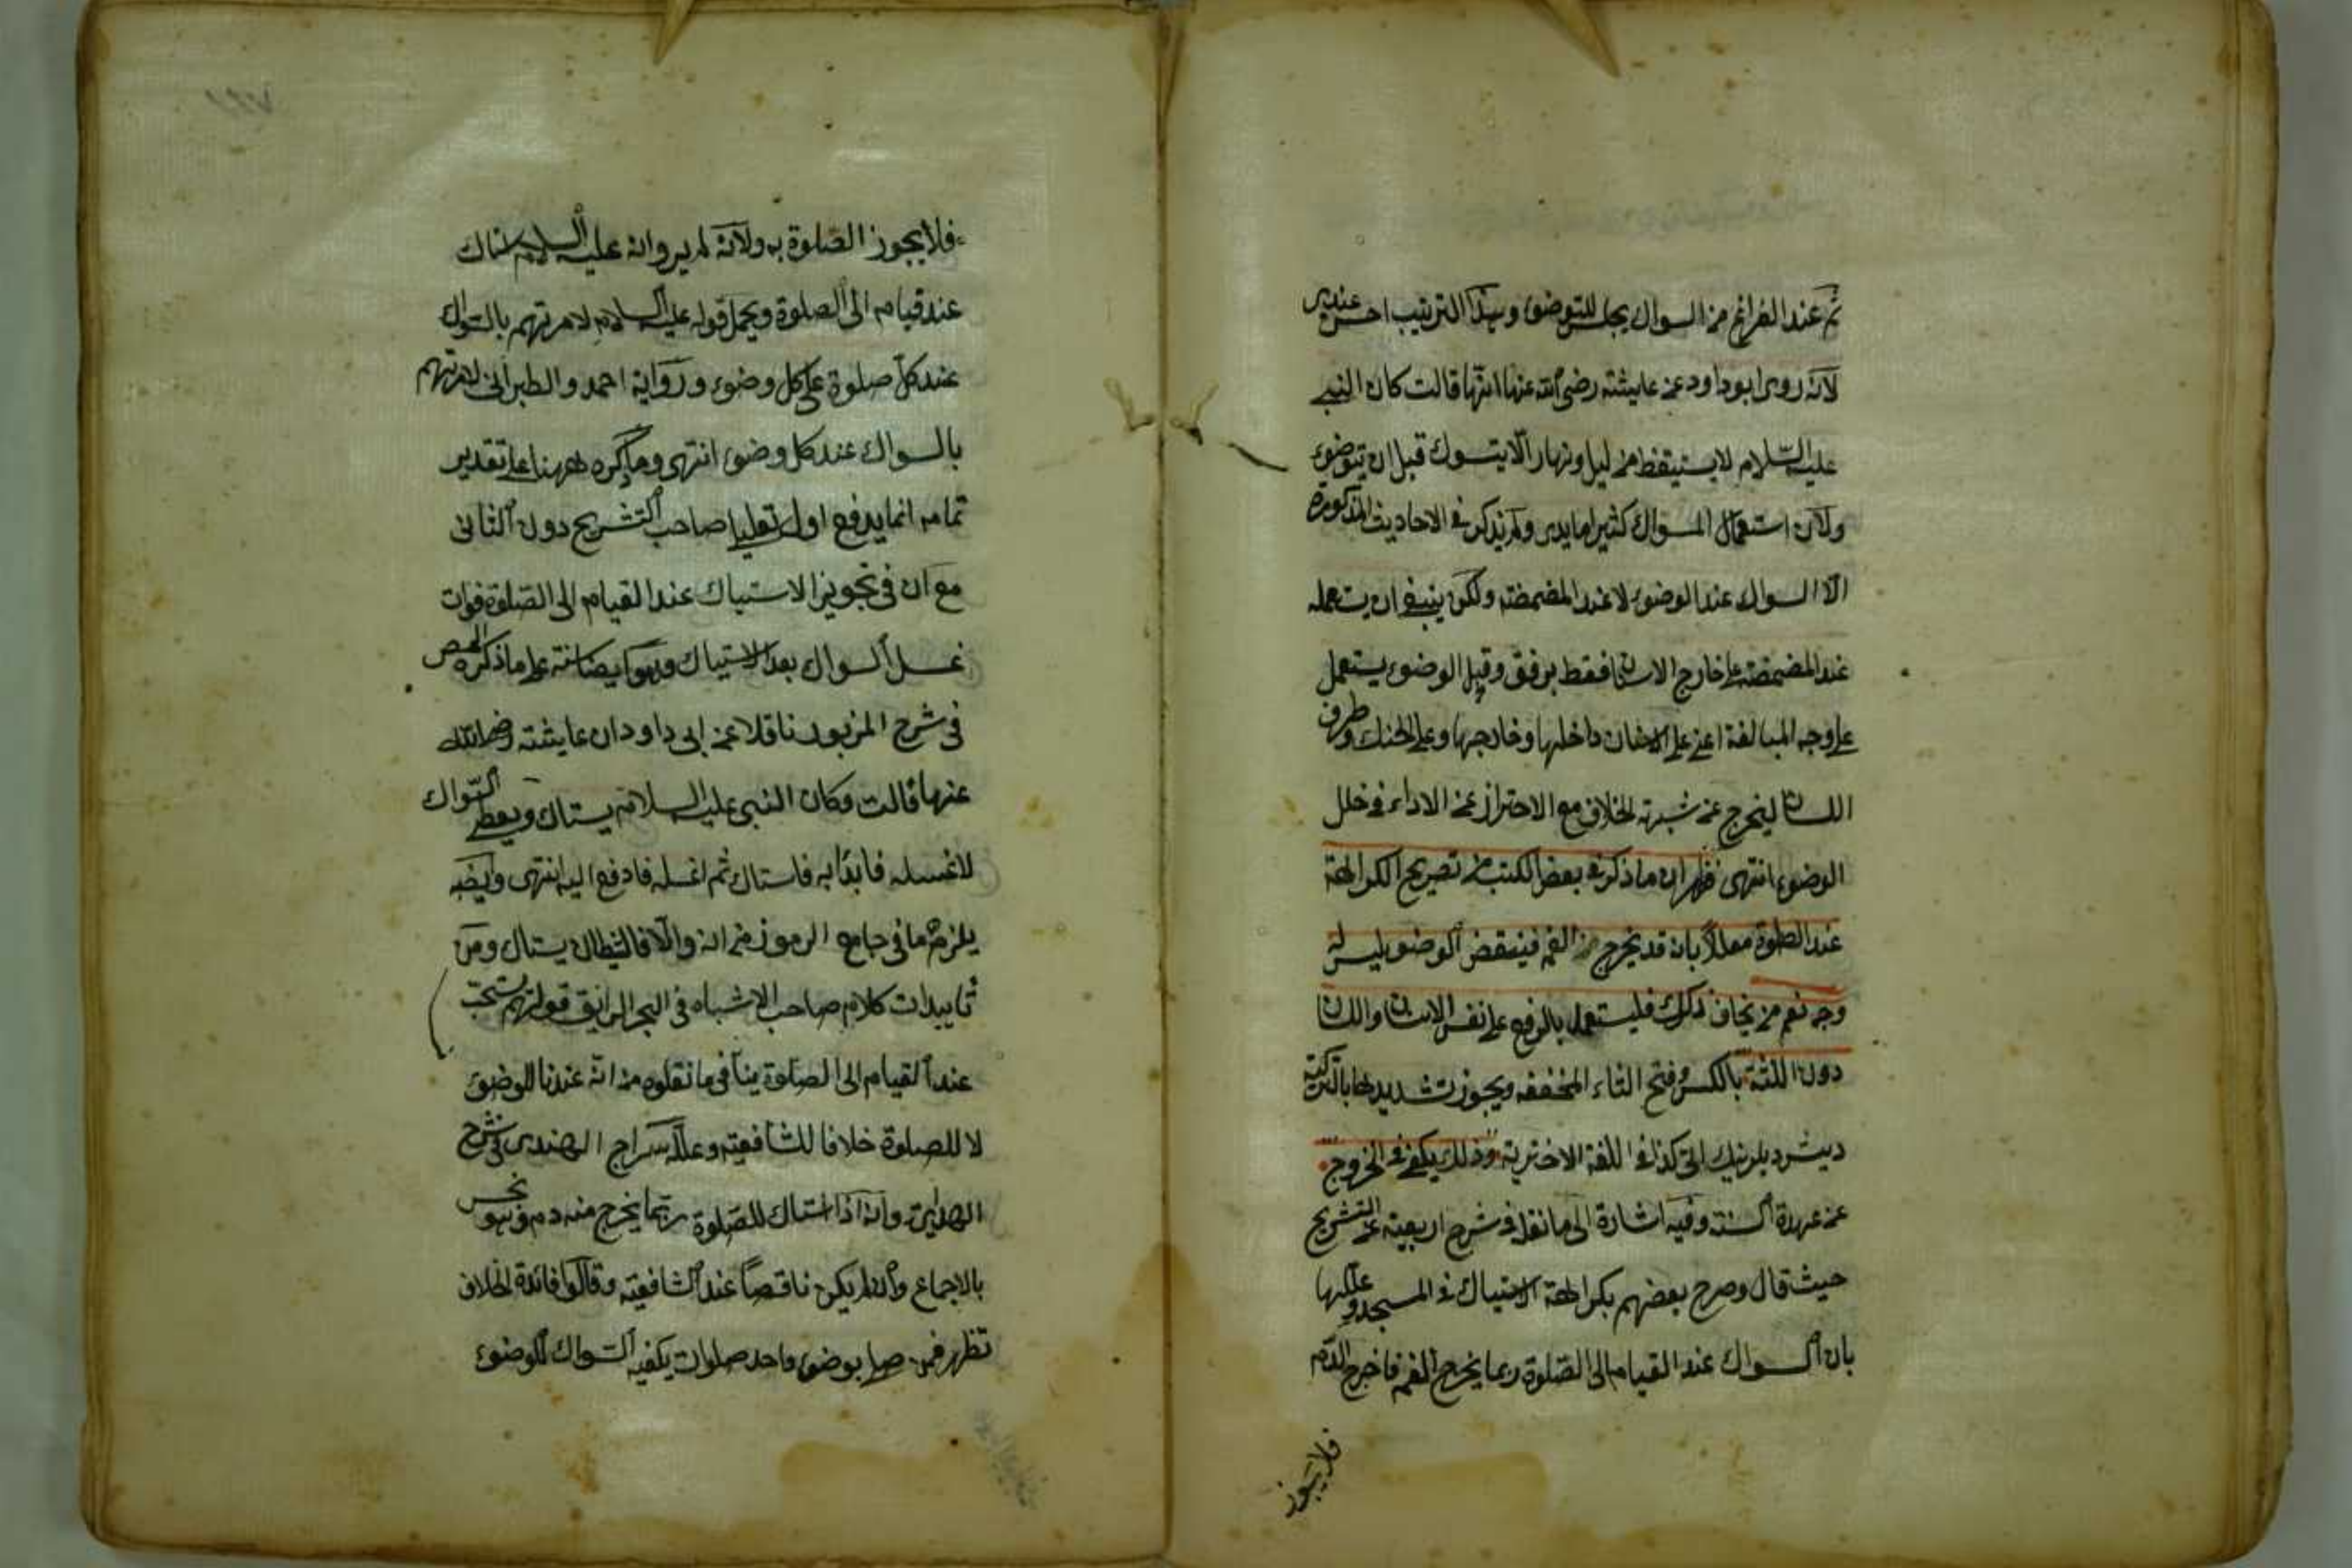 ثم عند الفراغ من السواك يجلس للتوضؤ وهذا الترتيب احسن عندى
لانه روى ابو داود عن عايشة رضى الله عنها انها قالت كان النبى
عليه السلام لا يستيقظ من ليل ونهار الا يتسوك قبل ان يتوضوء
ولان استعمال السواك كثيرا ما يدمى ولم يذكر فى الاحاديث المذكورة
الا السواك عند الوضوء لا عند المضمضة ولكن ينبغى ان يستعمله
عند المضمضة على خارج الاسنان فقط برفق وقبل الوضوء يستعمل
على وجه المبالغة اعنى على الاسنان داخلها وخارجها وعلى الحنك وطرف
اللسان ليخرج عن شبهة الخلاف مع الاحتراز عن الادماء فى خلل
الوضوء انتهى فظهر ان ما ذكر فى بعض الكتب من تصريح الكراهة
عند الصلوة معللا بانه قد يخرج من الفم فينقض الوضوء ليس له
وجه نعم من يخاف ذلك فليستعمل بالرفع على نفس الاسنان واللسان
دون اللثة بالكسر وفتح الثاء المخففه ويجوز تشديدها بالتركية
ديش دبلرينك اتى كذا فى اللغة الاخترية وذلك يكفى فى الخروج
عن عهدة السنة وفيه اشارة الى ما نقل فى شرح اربعية عن التشريح
حيث قال وصرح بعضهم بكراهة الاستياك فى المسجد وعللها
بان السواك عند القيام الى الصلوة ربما يخرج الفم فاخرج الدم
فلا يجوز
١٩٧
فلا يجوز الصلوة به ولانه لم يروانه عليه السلام استاك
عند قيامه الى الصلوة ويحمل قوله عليه السلام لامرتهم بالسواك
عند كل صلوة على كل وضوء ورواية احمد والطبرانى لامرتهم
بالسواك عند كل وضوء انتهى وما ذكره ههنا على تقدير
تمامه انما يدفع اول تعليل صاحب التشريح دون الثانى
مع ان فى تجويز الاستياك عند القيام الى الصلوة فوات
غسل السواك بعد الاستياك وهو ايضا سنة على ما ذكره المص
فى شرح المزبور ناقلا عن ابى داود ان عايشة رضى الله
عنها قالت وكان النبى عليه السلام يستاك ويعطى السواك
لاغسله فابدأ به فاستاك ثم اغسله فادفع اليه انتهى وايضا
يلزم ما فى جامع الرموز من انه والا فالشيطان يستاك ومن
تاييدات كلام صاحب الاشباه فى البحر الرايق قولهم يستحب
عند القيام الى الصلوة ينافى ما نقلوه من انه عندنا للوضوء
لا للصلوة خلافا للشافعية وعلله سراج الهندى فى شرح
الهداية وانه اذا استاك للصلوة ربما يخرج منه دم وهو نجس
بالاجماع وان لم يكن ناقضا عند الشافعية وقالوا فائدة الخلاف
تظهر فمن صلى بوضوء واحد صلوات يكفيه السواك للوضوء